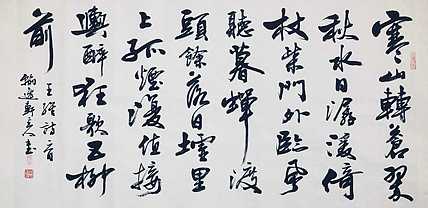 寒山轉蒼翠
秋水日潺湲倚
杖柴門外臨風
聽暮蟬渡
頭餘落日墟里
上孤煙復值接
輿醉狂歌五柳
前
王維詩一首